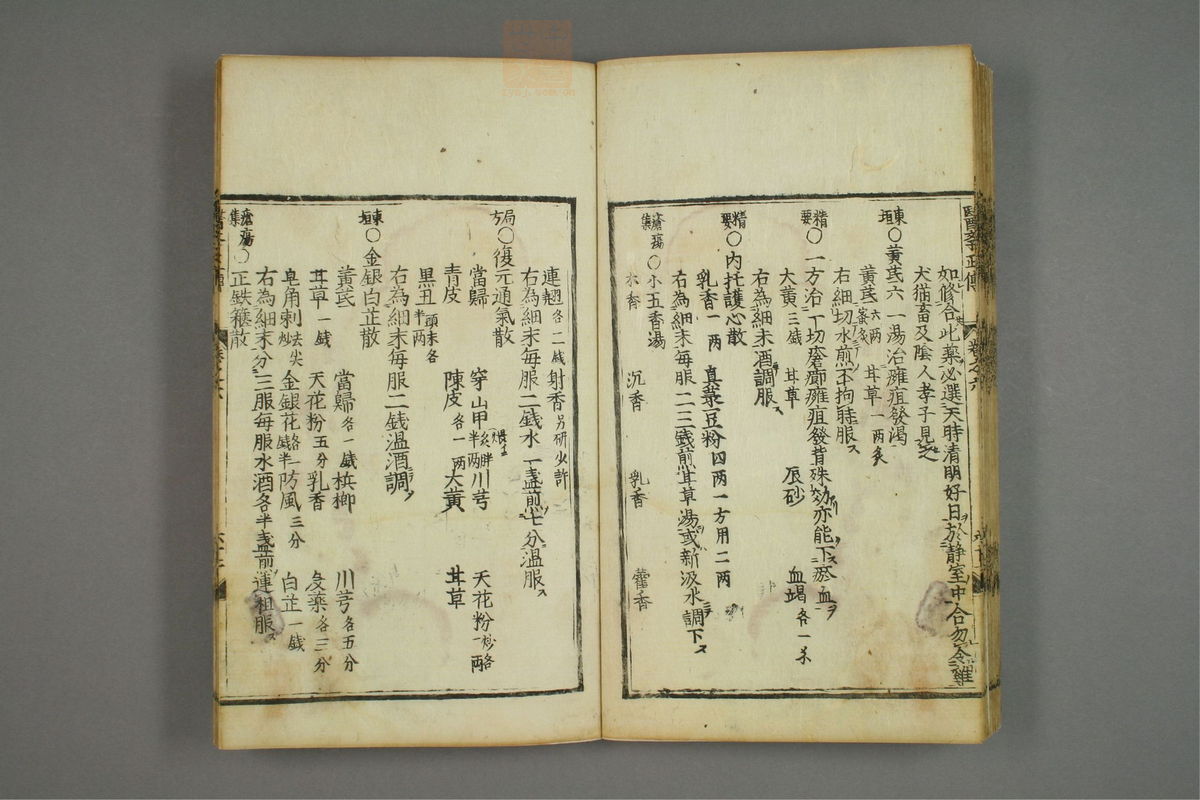 如修合此藥必選天時清明好日於靜室中合勿令雞
犬猫畜及陰人孝子見之
東垣○黃芪六一湯治癰疽發渴
黃芪六兩蜜炙 甘草一兩炙
右細切水煎不拘時服
精要○一方治一切瘡癤癰疽發背殊効亦能下瘀血
大黃三錢 甘草 辰砂 血竭各一錢
右為細末酒調服
精要○內托護心散
乳香一兩 真菉豆粉四兩一方用二兩
右為細末每服二三錢煎甘草湯或新汲水調下
瘡瘍集○小五香湯
木香 沉香 乳香 藿香
連翹各二錢 射香另研少許
右為細末每服二錢水一盞煎七分溫服
局方○復元通氣散
當歸 穿山甲 川芎 天花粉
青皮 陳皮各一兩 大黃 甘草
黑丑半兩頭末各
右為細末每服二錢溫酒調
東垣○金銀白芷散
黃芪 當歸各一錢 梹榔 川芎各五分
甘草一錢 天花粉五分 乳香 沒藥各三分
皂角刺炒去尖 金銀花 防風三分 白芷一錢
右為細末分三服每服水酒各半盞煎 服
瘡瘍集○正鉄箍散